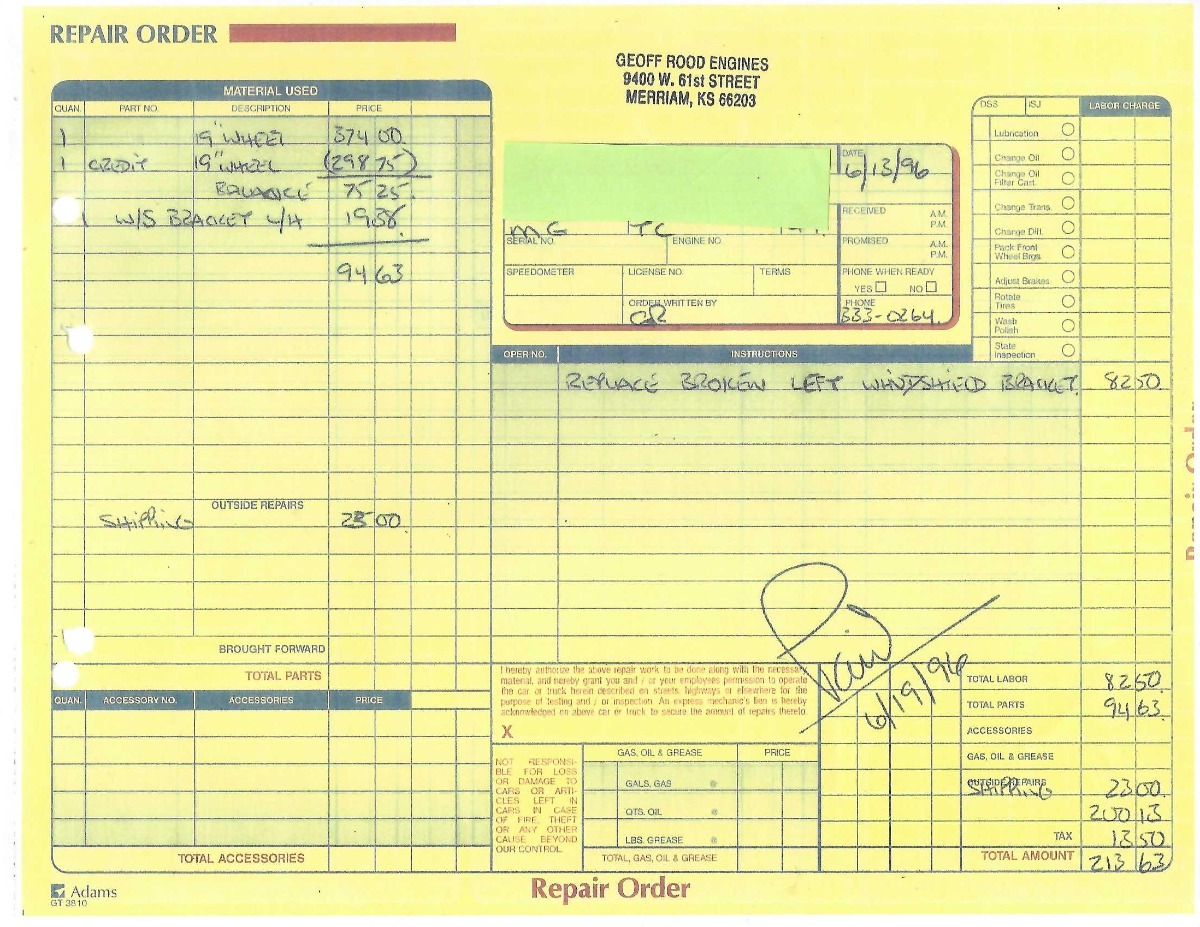 REPAIR ORDER
GEOFF ROOD ENGINES
9400 W. 61st STREET
MERRIAM, KS 66203
MATERIAL USED
QUAN. PART NO. DESCRIPTION PRICE
1 19" WHEEL 374 00
1 CREDIT 19" WHEEL (298 75)
BALANCE 75 25
1 W/S BRACKET L/H 19 38
94 63
OUTSIDE REPAIRS
SHIPPING 23 00
BROUGHT FORWARD
TOTAL PARTS
QUAN. ACCESSORY NO. ACCESSORIES PRICE
TOTAL ACCESSORIES
DATE
6/13/96
RECEIVED A.M.
P.M.
MG TC
SERIAL NO. ENGINE NO PROMISED A.M.
P.M.
SPEEDOMETER LICENSE NO. TERMS PHONE WHEN READY
YES NO
ORDER WRITTEN BY PHONE
GR 333-0264
DSS ISJ LABOR CHARGE
Lubrication
Change Oil
Change Oil
Filter Cart.
Change Trans.
Change Diff.
Pack Front
Wheel Brgs.
Adjust Brakes
Rotate
Tires
Wash
Polish
State
Inspection
OPER NO. INSTRUCTIONS
REPLACE BROKEN LEFT WINDSHIELD BRACKET 82 50
Paid
6/19/96
I hereby authorize the above repair work to be done along with the necessary
material, and hereby grant you and / or your employees permission to operate
the car or truck herein described on streets, highways or elsewhere for the
purpose of testing and / or inspection. An express mechanic's lien is hereby
acknowledged on above car or truck to secure the amount of repairs thereto.
X
NOT RESPONSI-
BLE FOR LOSS
OR DAMAGE TO
CARS OR ARTI-
CLES LEFT IN
CARS IN CASE
OF FIRE, THEFT
OR ANY OTHER
CAUSE BEYOND
OUR CONTROL.
GAS, OIL & GREASE PRICE
GALS. GAS @
QTS. OIL @
LBS. GREASE @
TOTAL, GAS, OIL & GREASE
TOTAL LABOR 82 50
TOTAL PARTS 94 63
ACCESSORIES
GAS, OIL & GREASE
OUTSIDE REPAIRS
SHIPPING 23 00
200 13
TAX 13 50
TOTAL AMOUNT 213 63
Adams
GT 3810
Repair Order
Repair Order